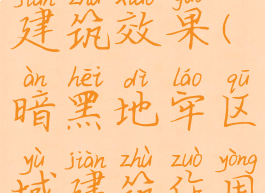 jiàn zhù xiào guǒ
建筑效果(
àn hēi dì láo qū
暗黑地牢区
yù jiàn zhù zuò yòng
域建筑作用